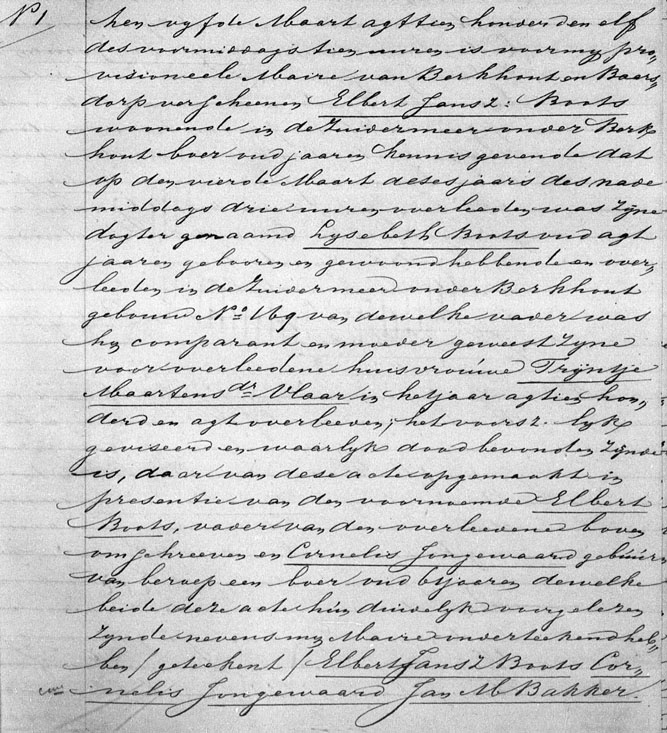 N° 1
den vyfde Maart agttien honderd en elf
des voormiddags tien uuren is voor my pro„
visioneele Maire van Berkhout en Baers„
dorp verscheenen Elbert Jansz: Boots
woonende in de Zuidermeer onder Berk
hout boer oud jaaren kennis gevende dat
op den vierde Maart deses jaars des nade
middags drie uuren overleeden was zyne
dogter genaamd Lysebeth Boots oud agt
jaaren gebooren en gewoond hebbende en over„
leeden in de Zuidermeer onder Berkhout
gebouw No: 169 van dewelke vader was
hy comparant en moeder geweest zyne
voor overleedene huisvrouwe Trijntje
Maartensdr Vlaar in het jaar agtien hon„
derd en agt overleeden; het voorsz. lyk
geviseerd en waarlyk dood bevonden zynde
is, daar van dese acte opgemaakt in
presentie van den voornoemde Elbert
Boots, vader van den overleevene boven
omschreeven en Cornelis Jongewaard gebuur
van beroep een boer oud jaaren dewelke
beide deze acte hun duidelyk voorgelezen
zynde nevens my Maire onderteekend heb„
ben / geteekent / Elbert Jansz Boots Cor„
nelis Jongewaard Jan M Bakker.